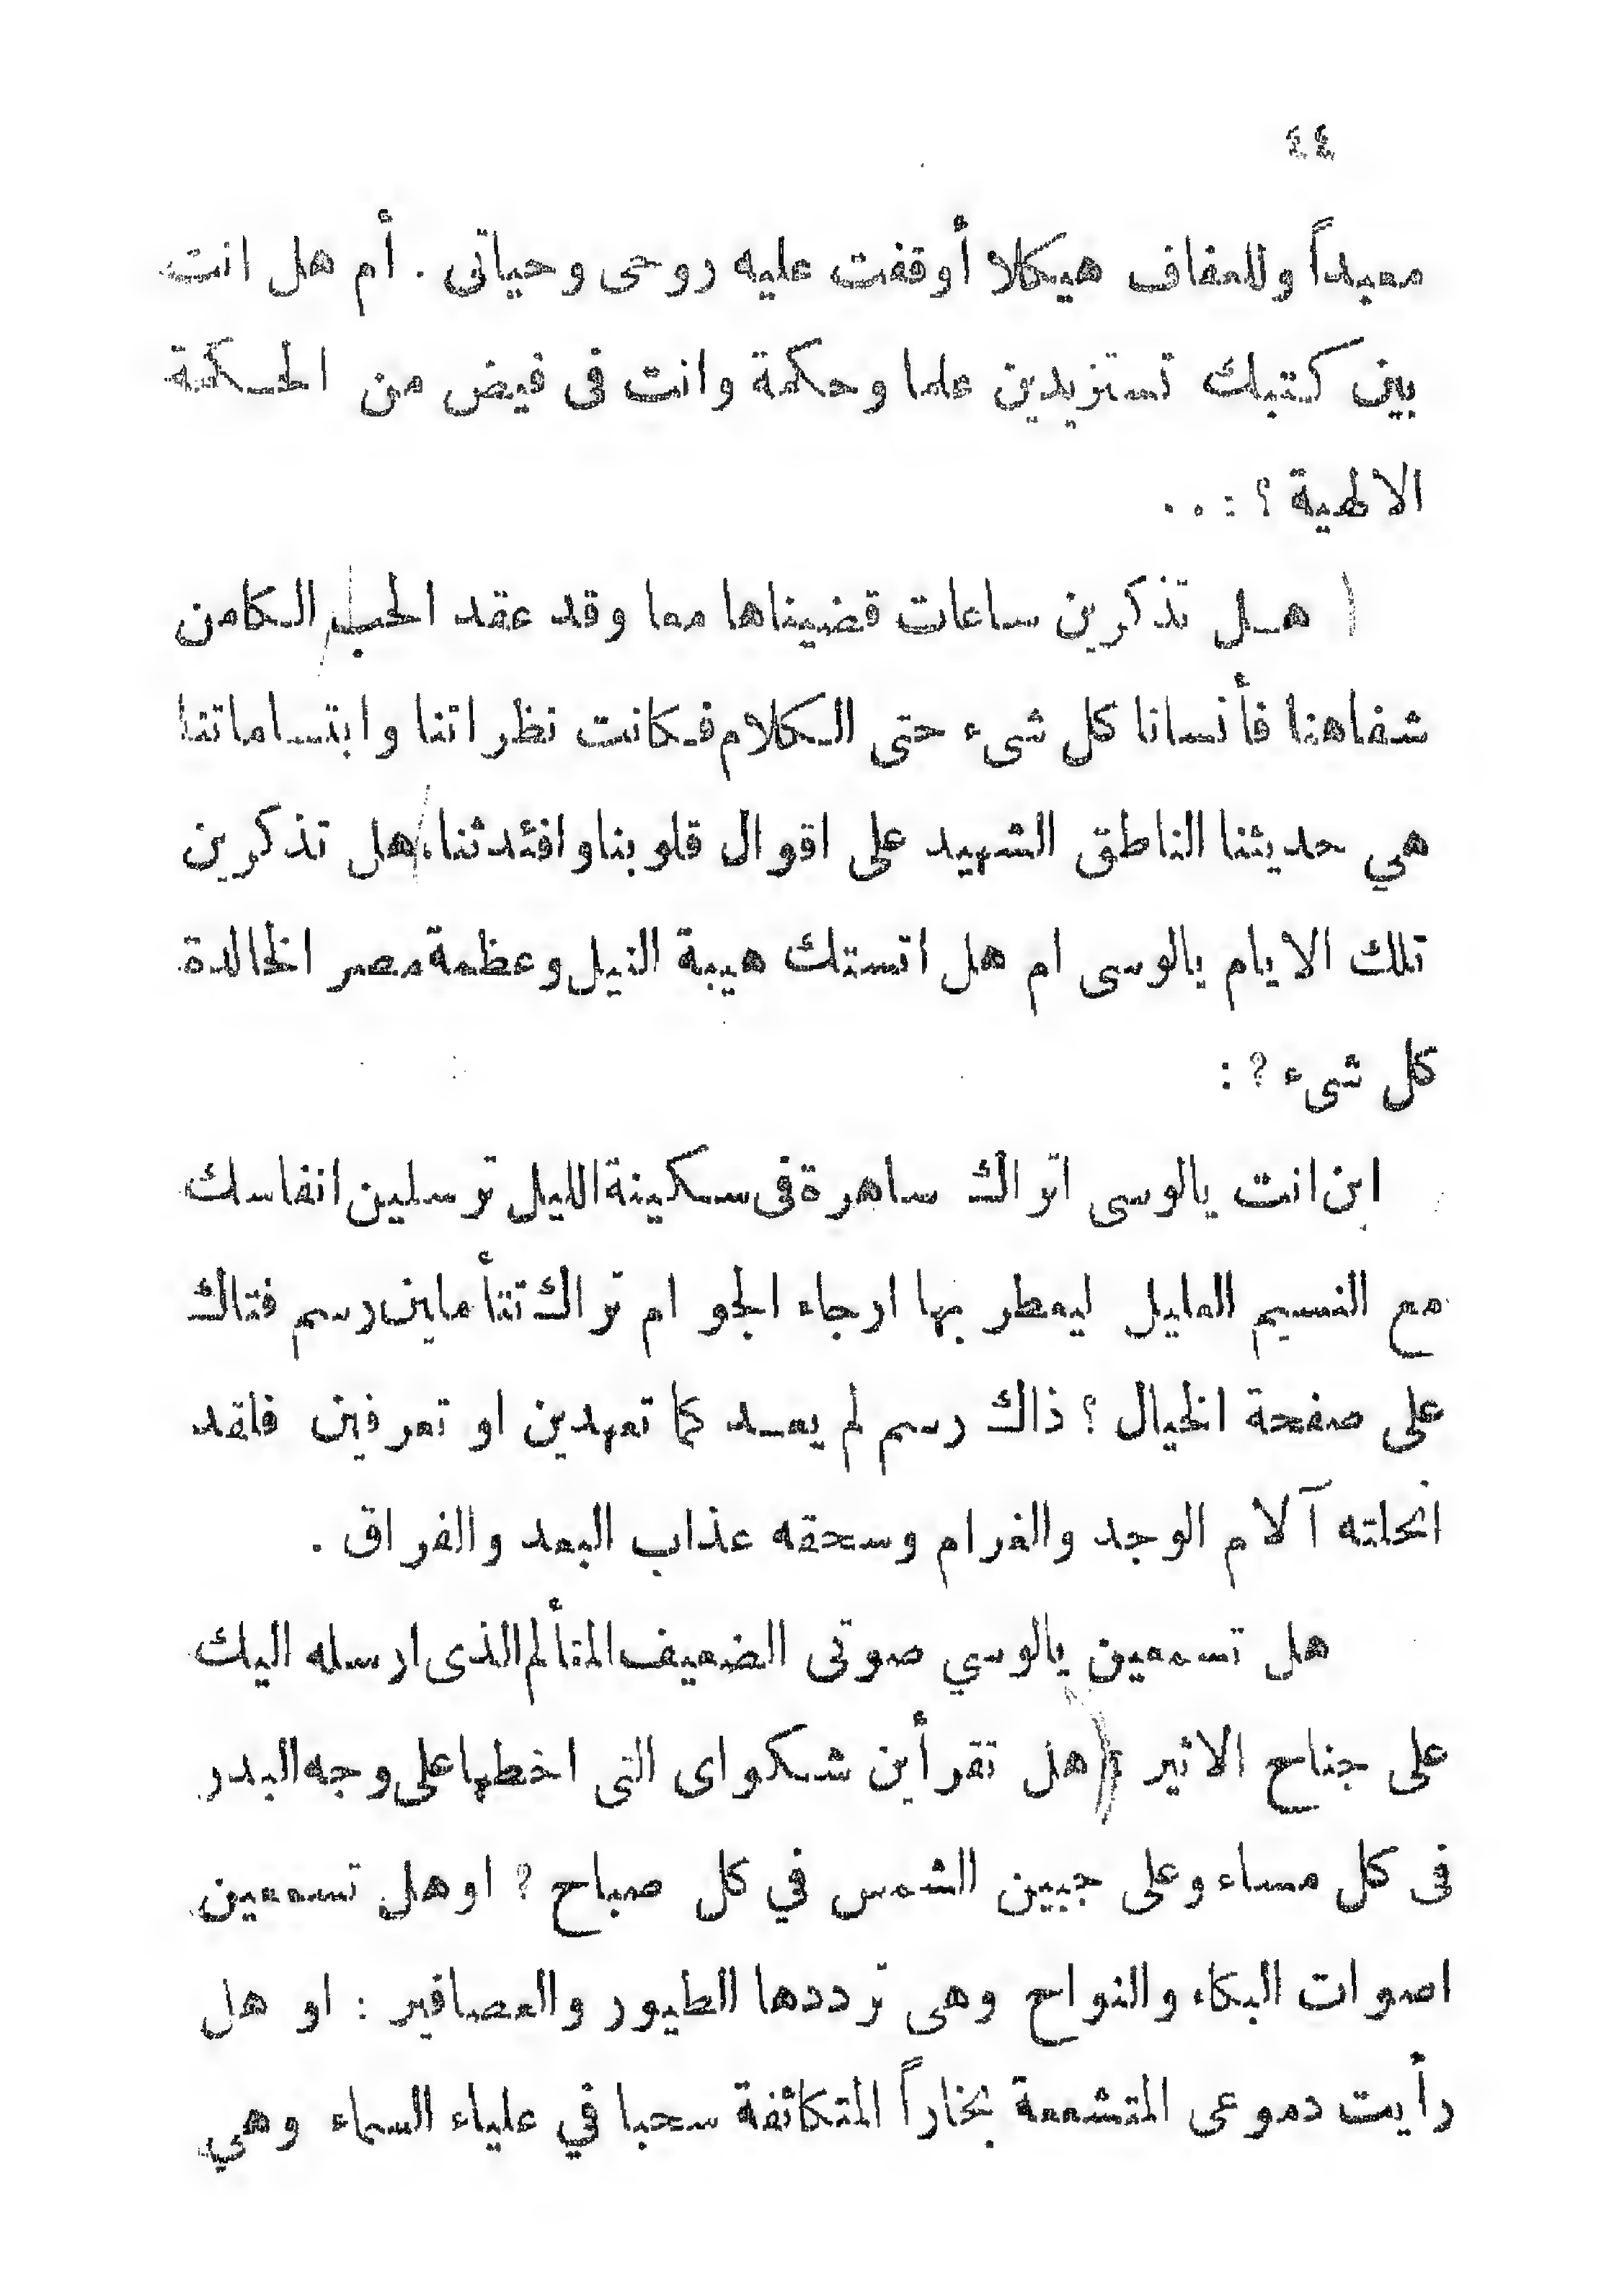 ٤٤
معبداً وللعفاف هيكلا أوقفت عليه روحى وحياتى . أم هل انت
بين كتبك تستزيدين علما وحكمة وانت فى فيض من الحكمة
الالهية ؟ : . .
هل تذكرين ساعات قضيناها معا وقد عقد الحب الكامن
شفاهنا فأنسانا كل شىء حتى الكلام فكانت نظراتنا وابتساماتنا
هي حديثنا الناطق الشهيد على اقوال قلوبنا وافئدثنا، هل تذكرين
تلك الايام يالوسى ام هل انستك هيبة النيل وعظمة مصر الخالدة
كل شىء ؟ :
اين انت يالوسى اتراك ساهرة فى سكينة الليل ترسلين انفاسك
مع النسيم العليل ليعطر بها ارجاء الجو ام تراك تتأملين رسم فتاك
على صفحة الخيال ؟ ذاك رسم لم يعد كما تعهدين او تعرفين فلقد
انحلته آلام الوجد والغرام وسحقه عذاب البعد والفراق .
هل تسمعين يالوسي صوتى الضعيف المتألم الذى ارسله اليك
على جناح الاثير ؟ هل تقرأين شكواى التى اخطها على وجه البدر
فى كل مساء وعلى جبين الشمس في كل صباح ؟ او هل تسمعين
اصوات البكاء والنواح وهى ترددها الطيور والعصافير : او هل
رأيت دموعى المتشععة بخاراً المتكاثفة سحبا في علياء السماء وهي